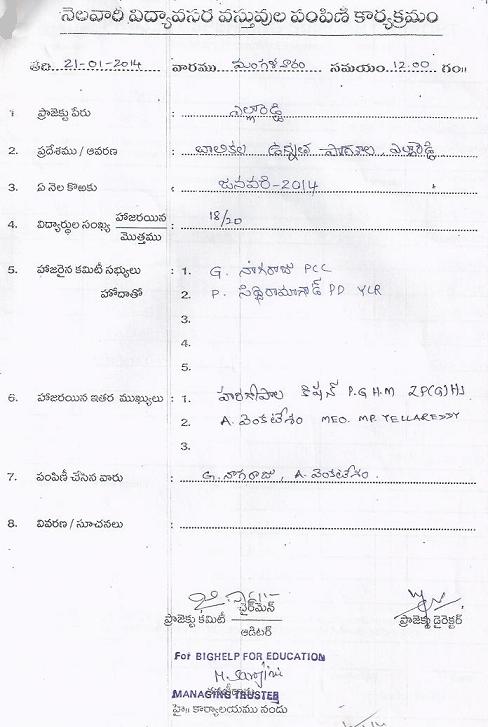 నెలవారి విద్యావసర వస్తువుల పంపిణి కార్యక్రమం
తేది. 21-01-2014 వారము మంగళవారం సమయం. 12.00 గం॥
1 ప్రాజెక్టు పేరు : ఎల్లారెడ్డి
2. ప్రదేశము / ఆవరణ : బాలికల ఉన్నత పాఠశాల, ఎల్లారెడ్డి
3. ఏ నెల కొఱకు : జనవరి-2014
4. విద్యార్థుల సంఖ్య హాజరయిన / మొత్తము : 18/20
5. హాజరైన కమిటీ సభ్యులు : 1. G. నాగరాజు PCC
హోదాతో 2. P. సిద్ధిరాములుగౌడ్ PD YLR
3.
4.
5.
6. హాజరయిన ఇతర ముఖ్యులు : 1. కిషన్ P.G.H.M ZP(G)HS
2. A. వెంకటేశం MEO. MP. YELLAREDDY
3.
7. పంపిణీ చేసిన వారు : G. నాగరాజు, A. వెంకటేశం.
8. వివరణ / సూచనలు :
ప్రాజెక్టు కమిటీ చైర్‌మెన్ / ఆడిటర్
ప్రాజెక్టు డైరెక్టర్
For BIGHELP FOR EDUCATION
M. Sarojini
MANAGING TRUSTEE
హై॥ కార్యాలయము నందు